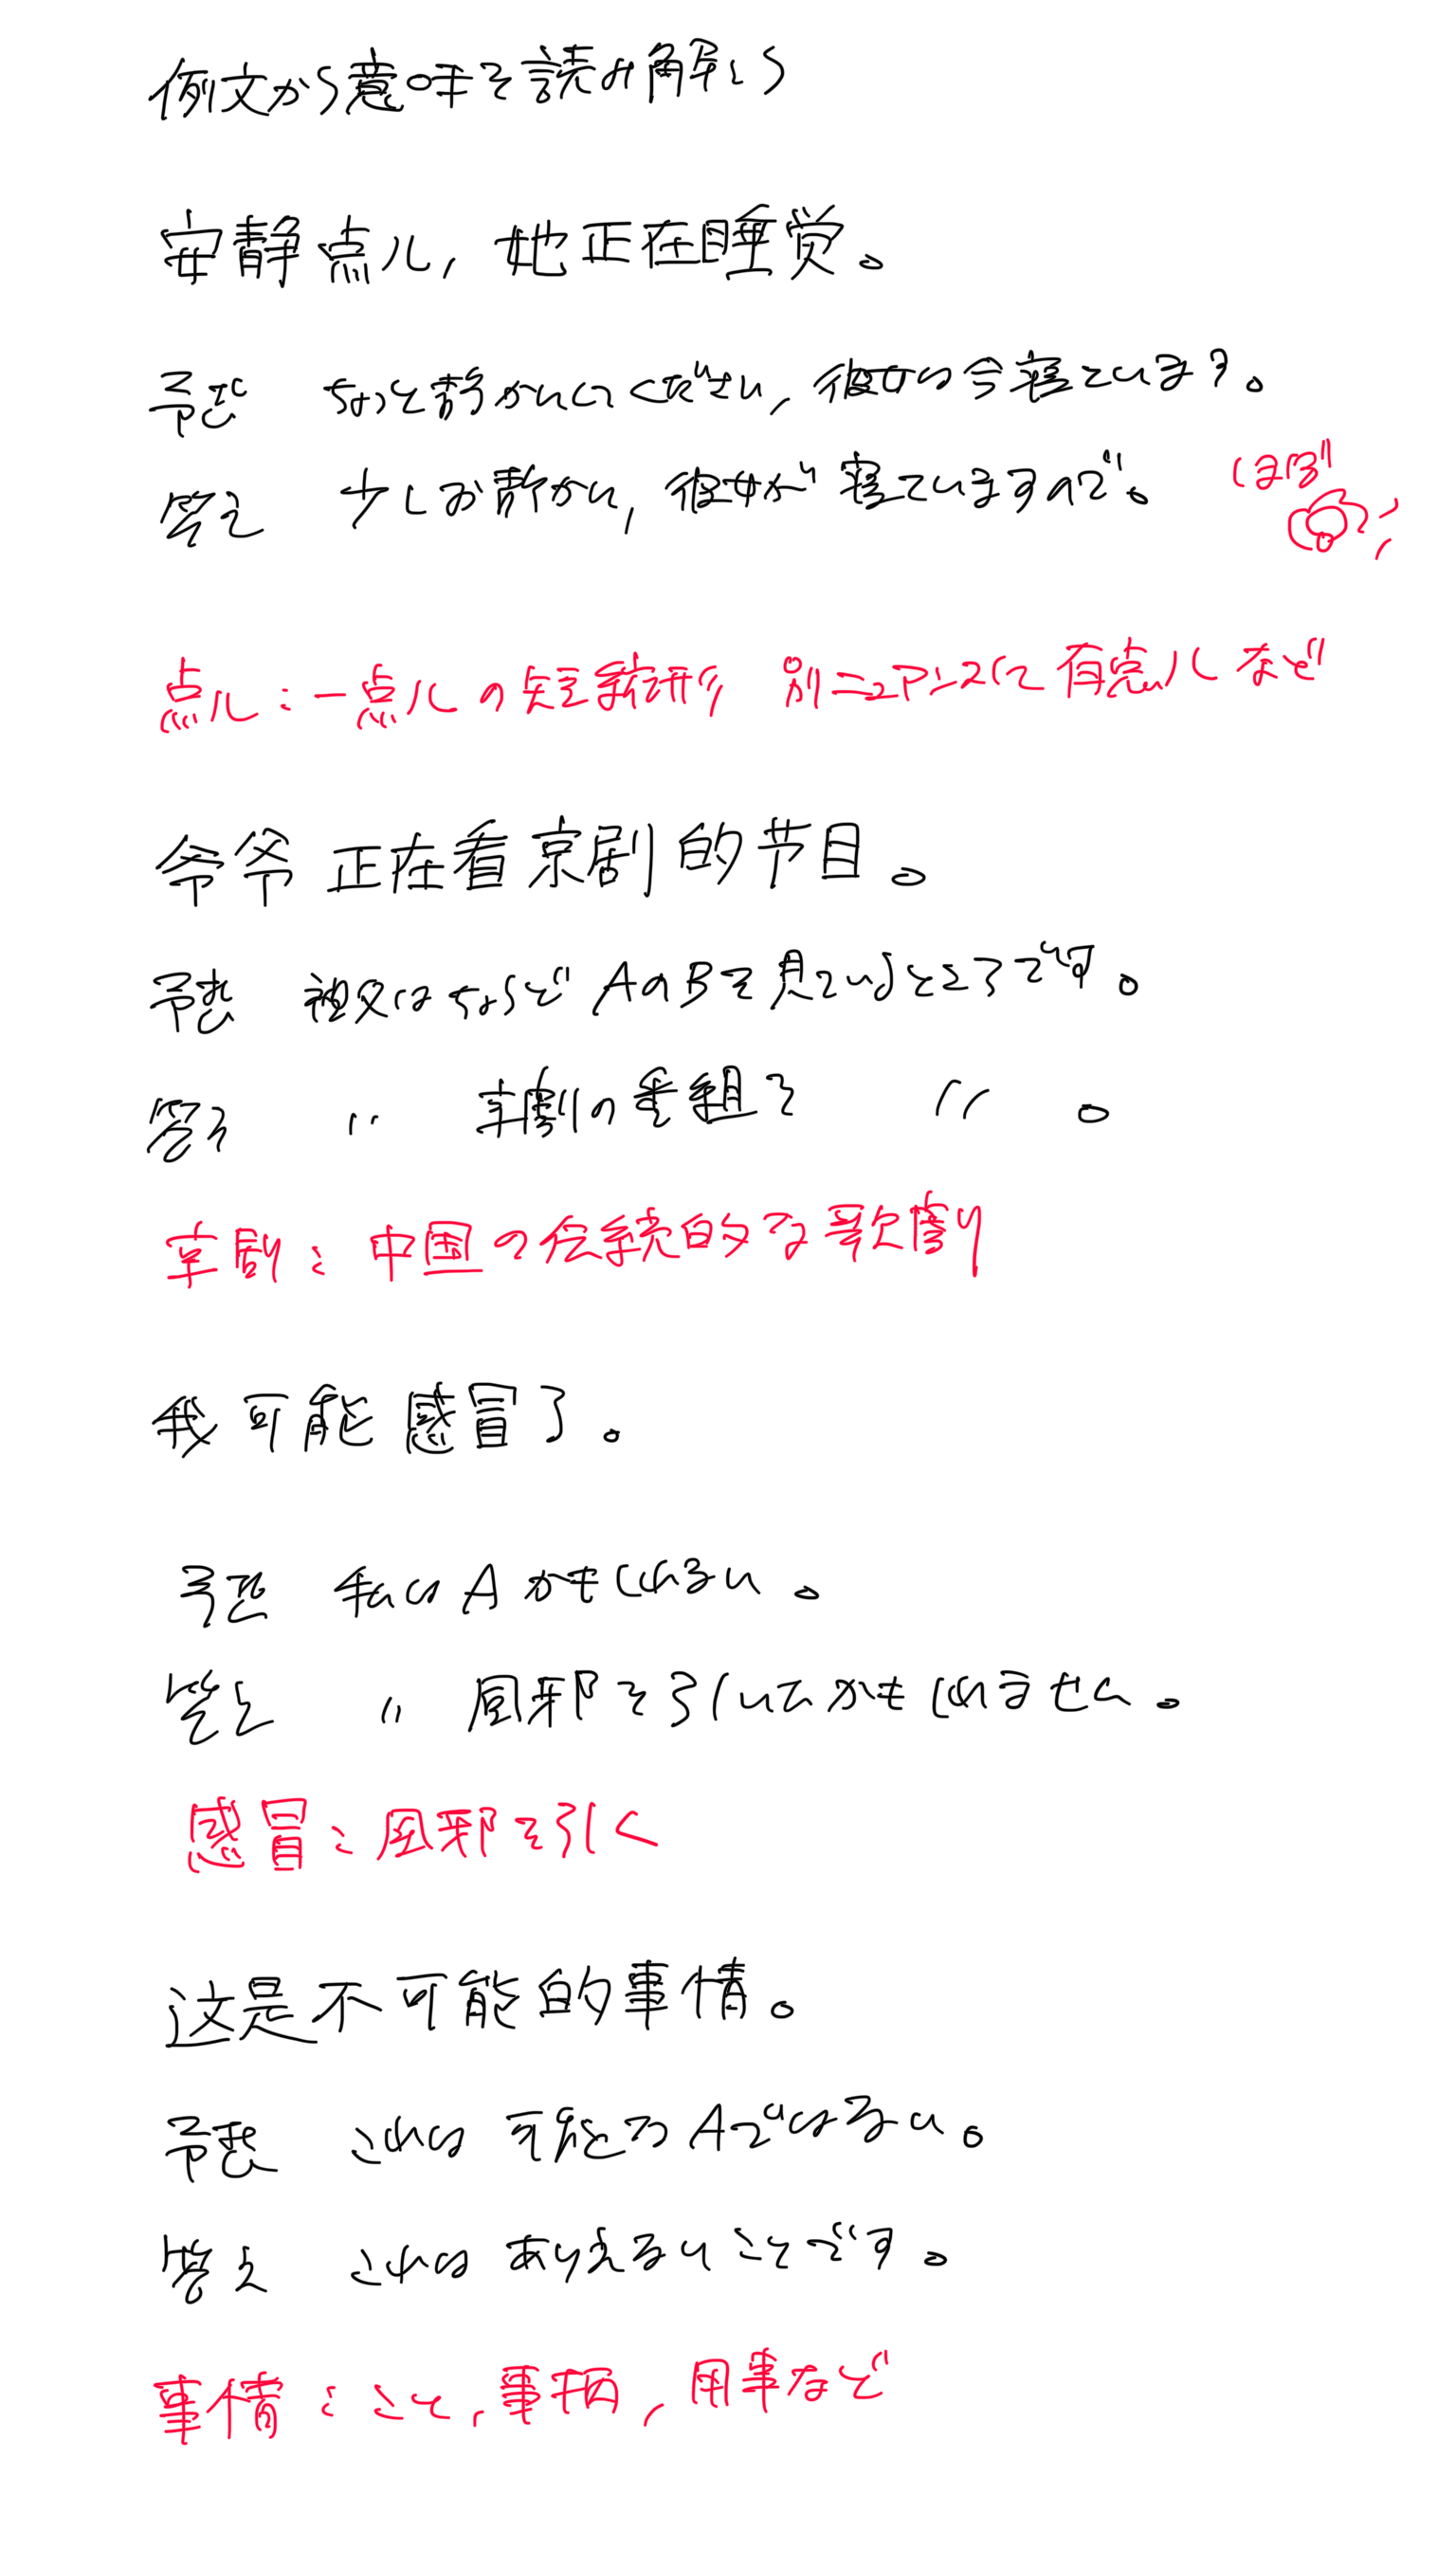 例文から意味を読み解こう
安静点儿, 她正在睡觉。
予想 ちょっと静かにしてください, 彼女は今寝ています。
答え 少しお静かに, 彼女が寝ていますので。 ほぼ
点儿:一点儿の短縮形 別ニュアンスにて有点儿など
爷爷正在看京剧的节目。
予想 祖父はちょうどAのBを見ているところです。
答え 〃 京劇の番組を 〃 。
京劇:中国の伝統的な歌劇
我可能感冒了。
予想 私はAかもしれない。
答え 〃 風邪を引いたかもしれません。
感冒:風邪を引く
这是不可能的事情。
予想 これは可能なAではない。
答え これはありえないことです。
事情:こと, 事柄, 用事など